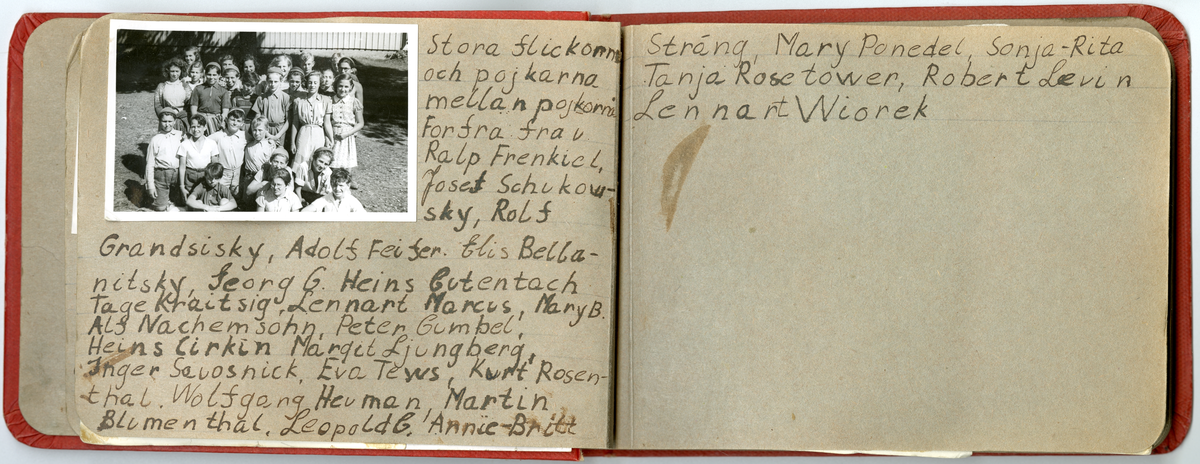 Stora flickorna
och pojkarna
mellanpojkorna
Forfra frau
Ralp Frenkiel,
Josef Schukow-
sky, Rolf
Grandsisky, Adolf Feifer. Elis Bella-
nitsky, Georg G. Heins Gutentach
Tage Kraitsig, Lennart Marcus, Mary B.
Alf Nachemsohn, Peter Gumbel,
Heins Cirkin Margit Ljungberg,
Inger Savosnick, Eva Tews, Kurt Rosen-
thal. Wolfgang Heuman, Martin
Blumenthal. Leopold G. Annie-Britt
Stráng, Mary Ponedel, Sonja-Rita
Tanja Rosetower, Robert Levin
Lennart Wiorek